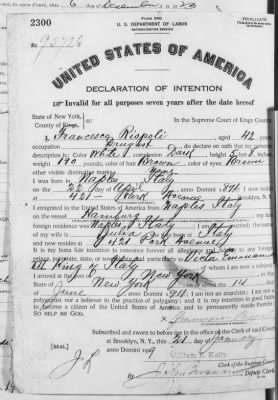 in open Court, this 6 day of December
2300
Form 2203
U. S. DEPARTMENT OF LABOR
NATURALIZATION SERVICE
TRIPLICATE
No.
UNITED STATES OF AMERICA
DECLARATION OF INTENTION
Invalid for all purposes seven years after the date hereof
State of New York,
County of Kings, ss:
In the Supreme Court of Kings County
I, Francesco Rispoli, aged 42 years,
occupation Druggist, do declare on oath that my personal
description is: Color White, complexion Dark, height 5 feet inches,
weight 190 pounds, color of hair Brown, color of eyes Brown
other visible distinctive marks
I was born in Naples Italy
on the 22 day of April, anno Domini; I now reside
at 421 Park Avenue, Brooklyn, N.Y.
I emigrated to the United States of America from Naples Italy
on the vessel Hamburg; my last
foreign residence was Naples Italy; I am married; the name
of my wife is Julia; she was born at Italy
and now resides at 421 Park Avenue
It is my bona fide intention to renounce forever all allegiance and fidelity to any foreign
prince, potentate, state, or sovereignty, and particularly to Victor Emmanuel
III King of Italy, of whom I am now a subject;
I arrived at the port of New York, in the
State of New York, on or about the 14 day
of June, anno Domini; I am not an anarchist; I am not a
polygamist nor a believer in the practice of polygamy; and it is my intention in good faith
to become a citizen of the United States of America and to permanently reside therein:
SO HELP ME GOD.
Subscribed and sworn to before me in the office of the Clerk of said Court
at Brooklyn, N. Y., this 21 day of January
anno Domini 19
[SEAL]
William F. Kelly
Clerk of the Supreme Court.
By, Deputy Clerk.